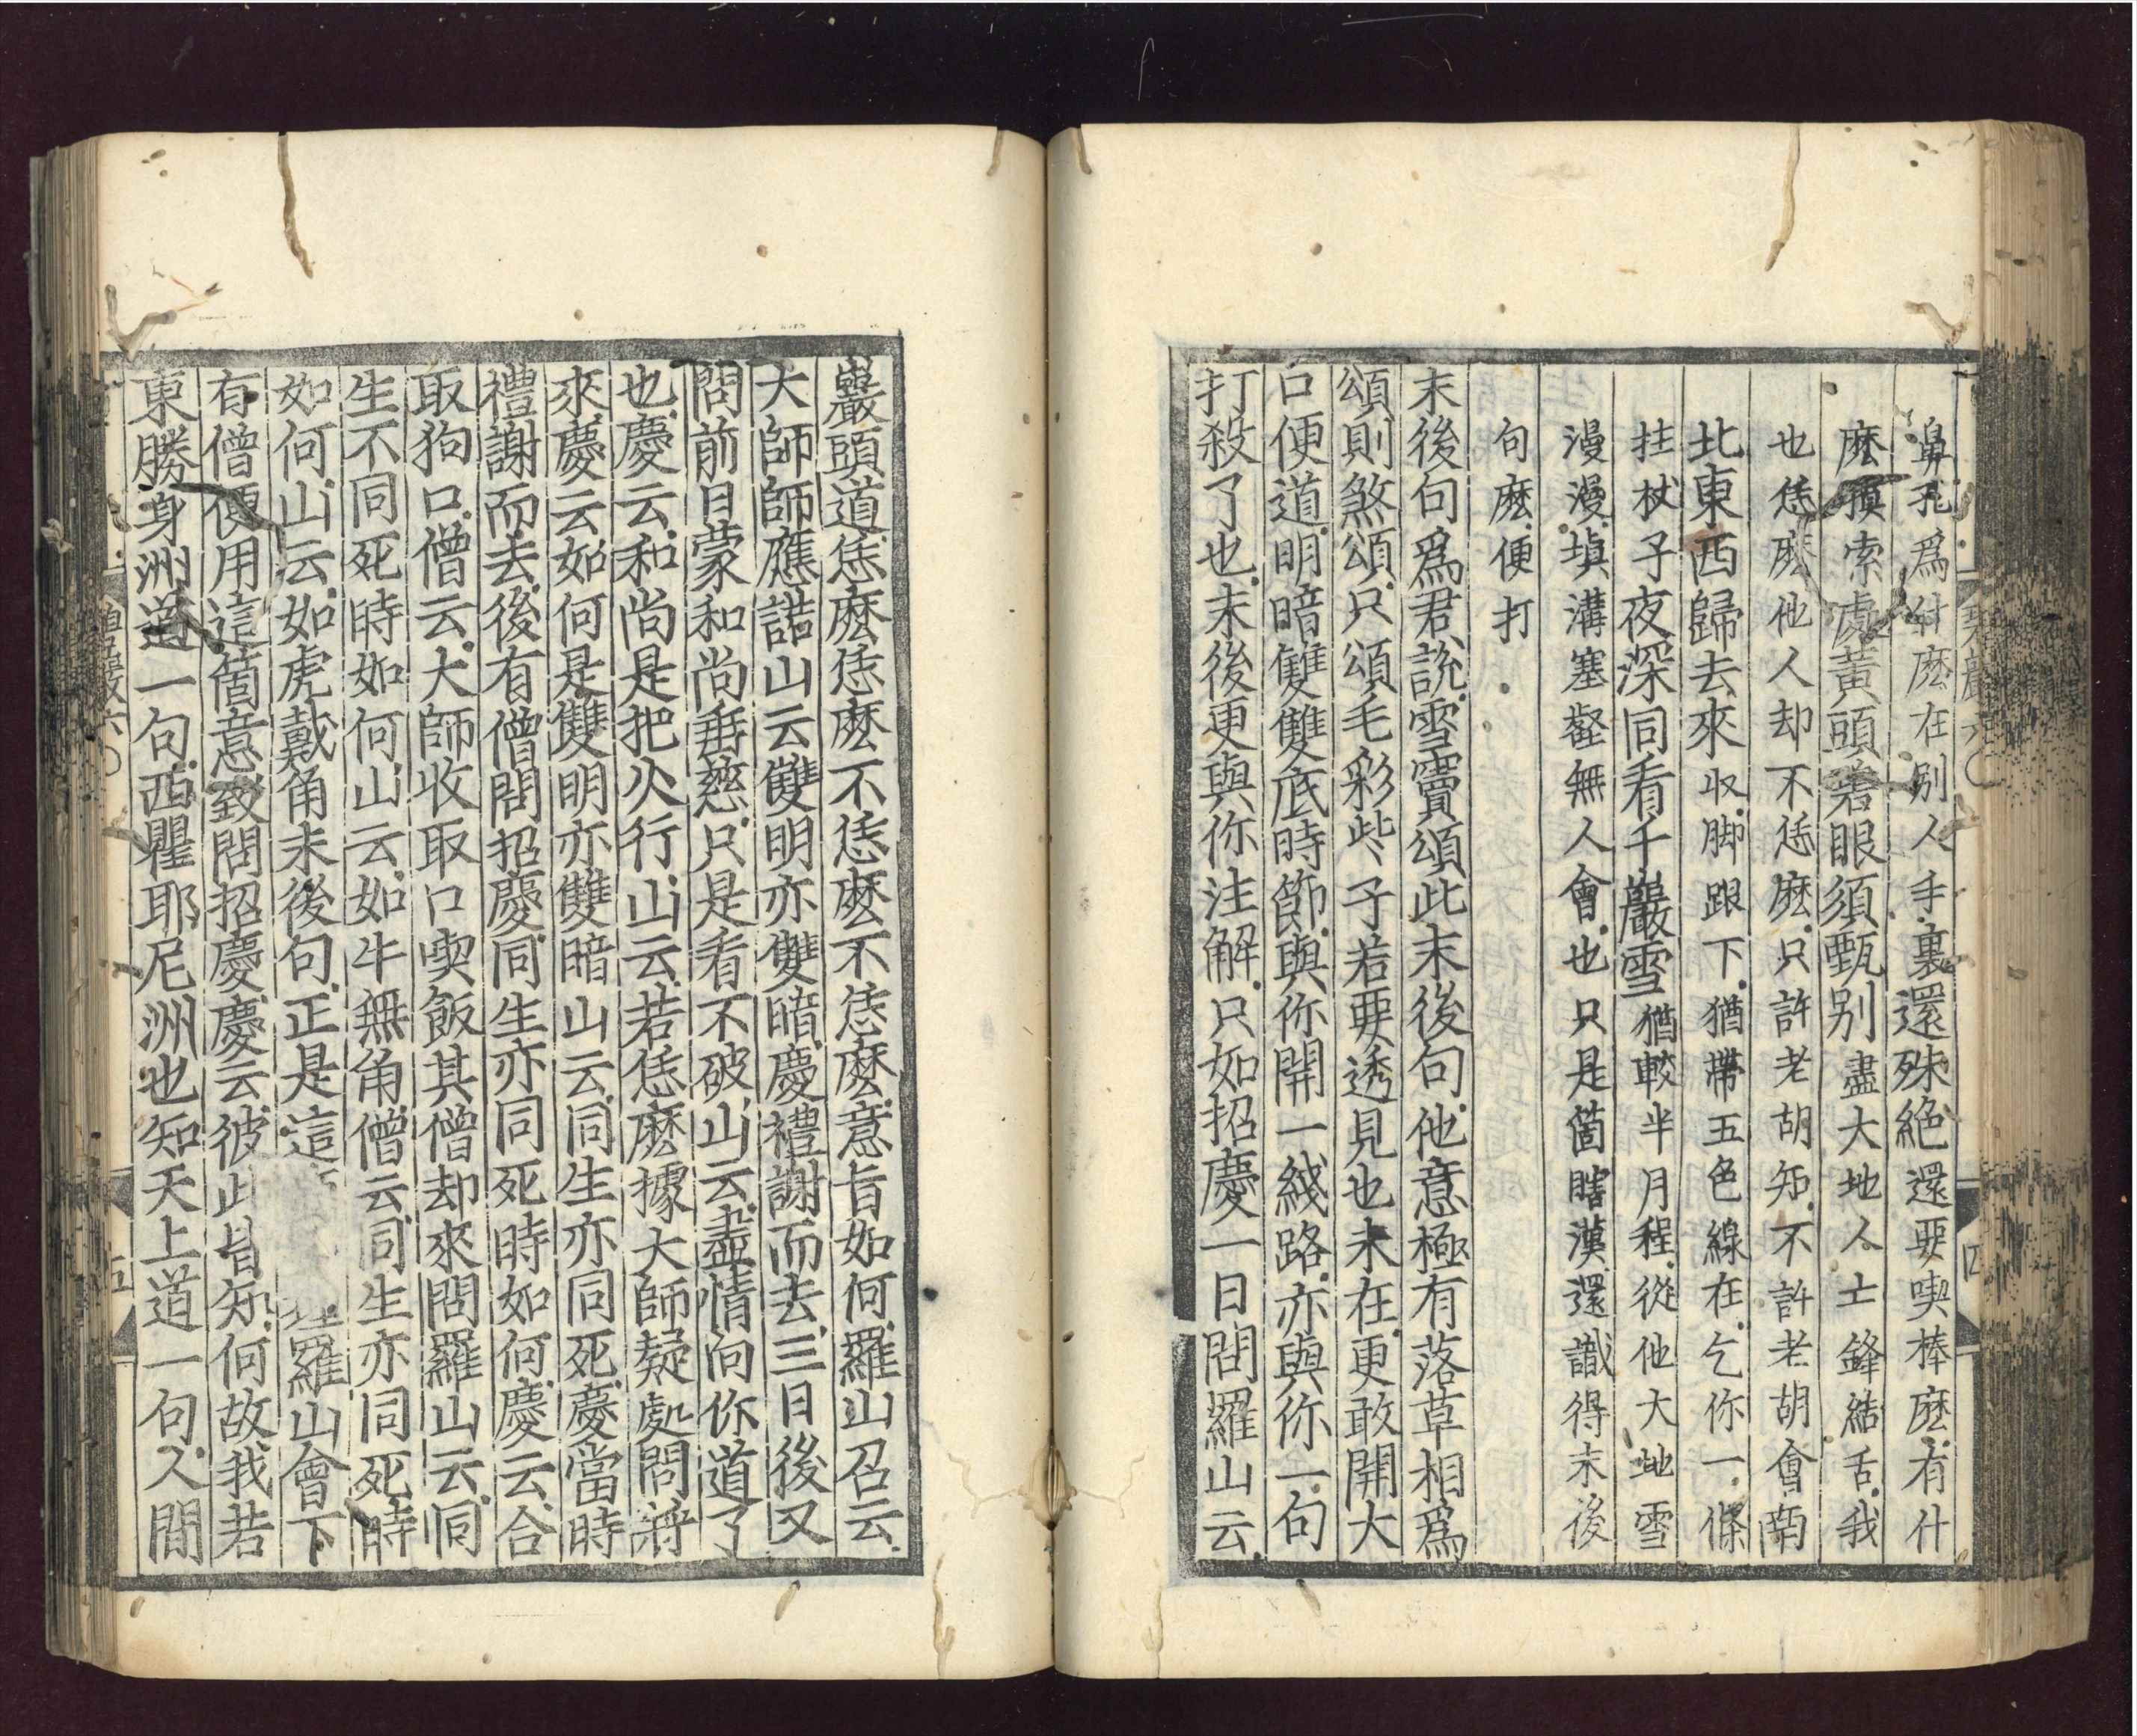 鼻孔爲什麽在別人手裏還殊絶還要喫棒麽有什
麽摸索處黃頭碧眼須甄別盡大地人亡鋒結舌我
也恁麽他人却不恁麽只許老胡知不許老胡會南
北東西歸去來收脚跟下猶帶五色線在乞你一條
拄杖子夜深同看千巖雪猶較半月程從他大地雪
漫漫塡溝塞壑無人會也只是箇瞎漢還識得末後
句麽便打
末後句爲君說雪竇頌此末後句他意極有落草相爲
頌則煞頌只頌毛彩些子若要透見也未在更敢開大
口便道明暗雙雙底時節與你開一綫路亦與你一句
打殺了也末後更與你注解只如招慶一日問羅山云
碧巖六
巖頭道恁麽恁麽不恁麽不恁麽意旨如何羅山召云
大師師應諾山云雙明亦雙暗慶禮謝而去三日後又
問前日蒙和尚垂慈只是看不破山云盡情向你道了
也慶云和尚是把火行山云若恁麽據大師疑處問將
來慶云如何是雙明亦雙暗山云同生亦同死慶當時
禮謝而去後有僧問招慶同生亦同死時如何慶云合
取狗口僧云大師收取口喫飯其僧却來問羅山云同
生不同死時如何山云如牛無角僧云同生亦同死時
如何山云如虎戴角末後句正是這 羅山會下
有僧便用這箇意致問招慶慶云彼此皆知何故我若
東勝身洲道一句西瞿耶尼洲也知天上道一句人間
碧巖六
五